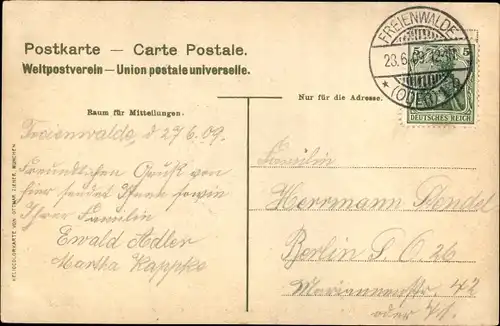 Postkarte — Carte Postale.
Weltpostverein — Union postale universelle.
FREIENWALDE
23.6.09
* (ODER)
5 5
DEUTSCHES REICH
Raum für Mitteilungen.
Nur für die Adresse.
Freienwalde, d 27 6 09.
Freundlichen Gruß von
hier sendet Ihnen sowie
Ihrer Familie
Ewald Adler
Martha Kappke
Familie
Herrmann
Berlin S. O 26
Mariannenstr. 42
oder 41.